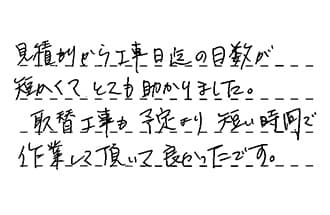 見積りから工事日迄の日数が
短かくてとても助かりました。
取替工事も予定より短い時間で
作業して頂いて良かったです。